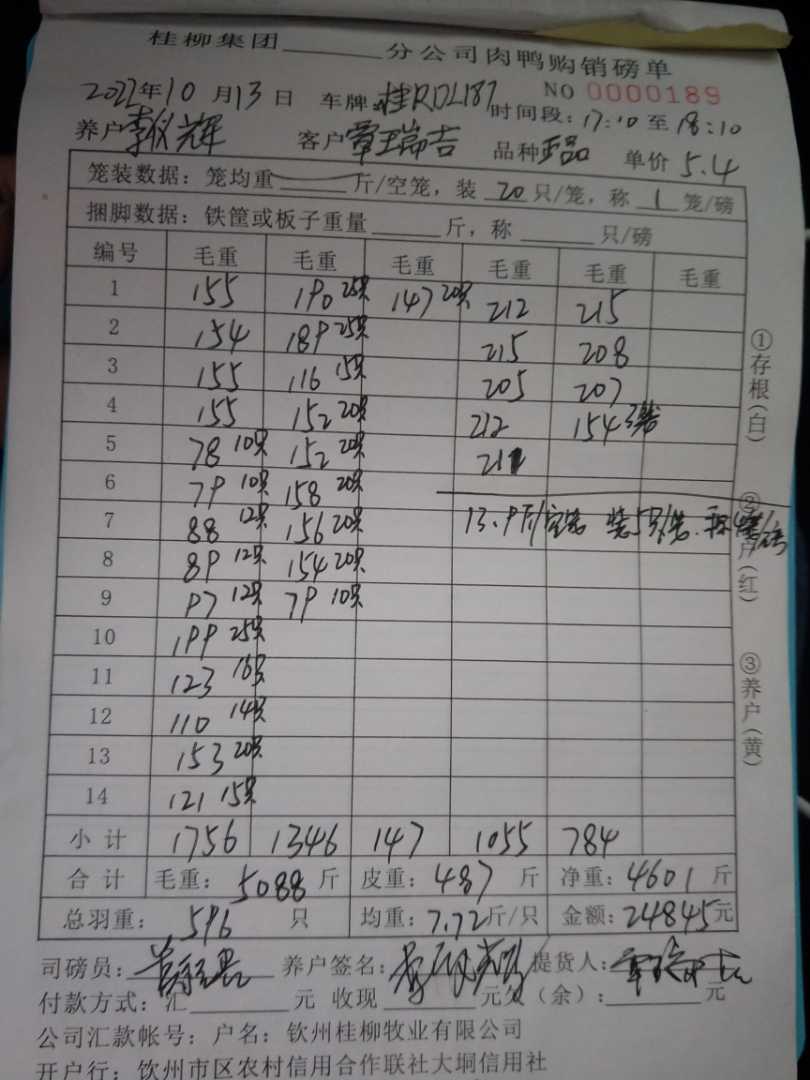 桂柳集团______分公司肉鸭购销磅单
2022年10月13日 车牌:桂RDL187 NO 0000189
时间段:17:10至18:10
养户李仪辉 客户覃瑞吉 品种 单价 5.4
笼装数据:笼均重______斤/空笼,装 20 只/笼,称 1 笼/磅
捆脚数据:铁筐或板子重量______斤,称______只/磅
编号 毛重 毛重 毛重 毛重 毛重 毛重
1 155 190 25只 147 20只 212 215
2 154 189 25只 215 208
3 155 116 15只 205 207
4 155 152 20只 212 154 3笼
5 78 10只 152 20只 211
6 79 10只 158 20只
7 88 12只 156 20只 13.9斤/空笼 装5只/笼.称4笼/磅
8 89 12只 154 20只
9 97 12只 79 10只
10 199 25只
11 123 16只
12 110 14只
13 153 20只
14 121 15只
小计 1756 1346 147 1055 784
合计 毛重:5088斤 皮重:487斤 净重:4601斤
总羽重:596只 均重:7.72斤/只 金额:24845元
司磅员: 养户签名: 提货人:
付款方式:汇______元 收现______元 (余):______元
公司汇款帐号:户名:钦州桂柳牧业有限公司
开户行:钦州市区农村信用合作联社大垌信用社
①存根(白)
②客户(红)
③养户(黄)